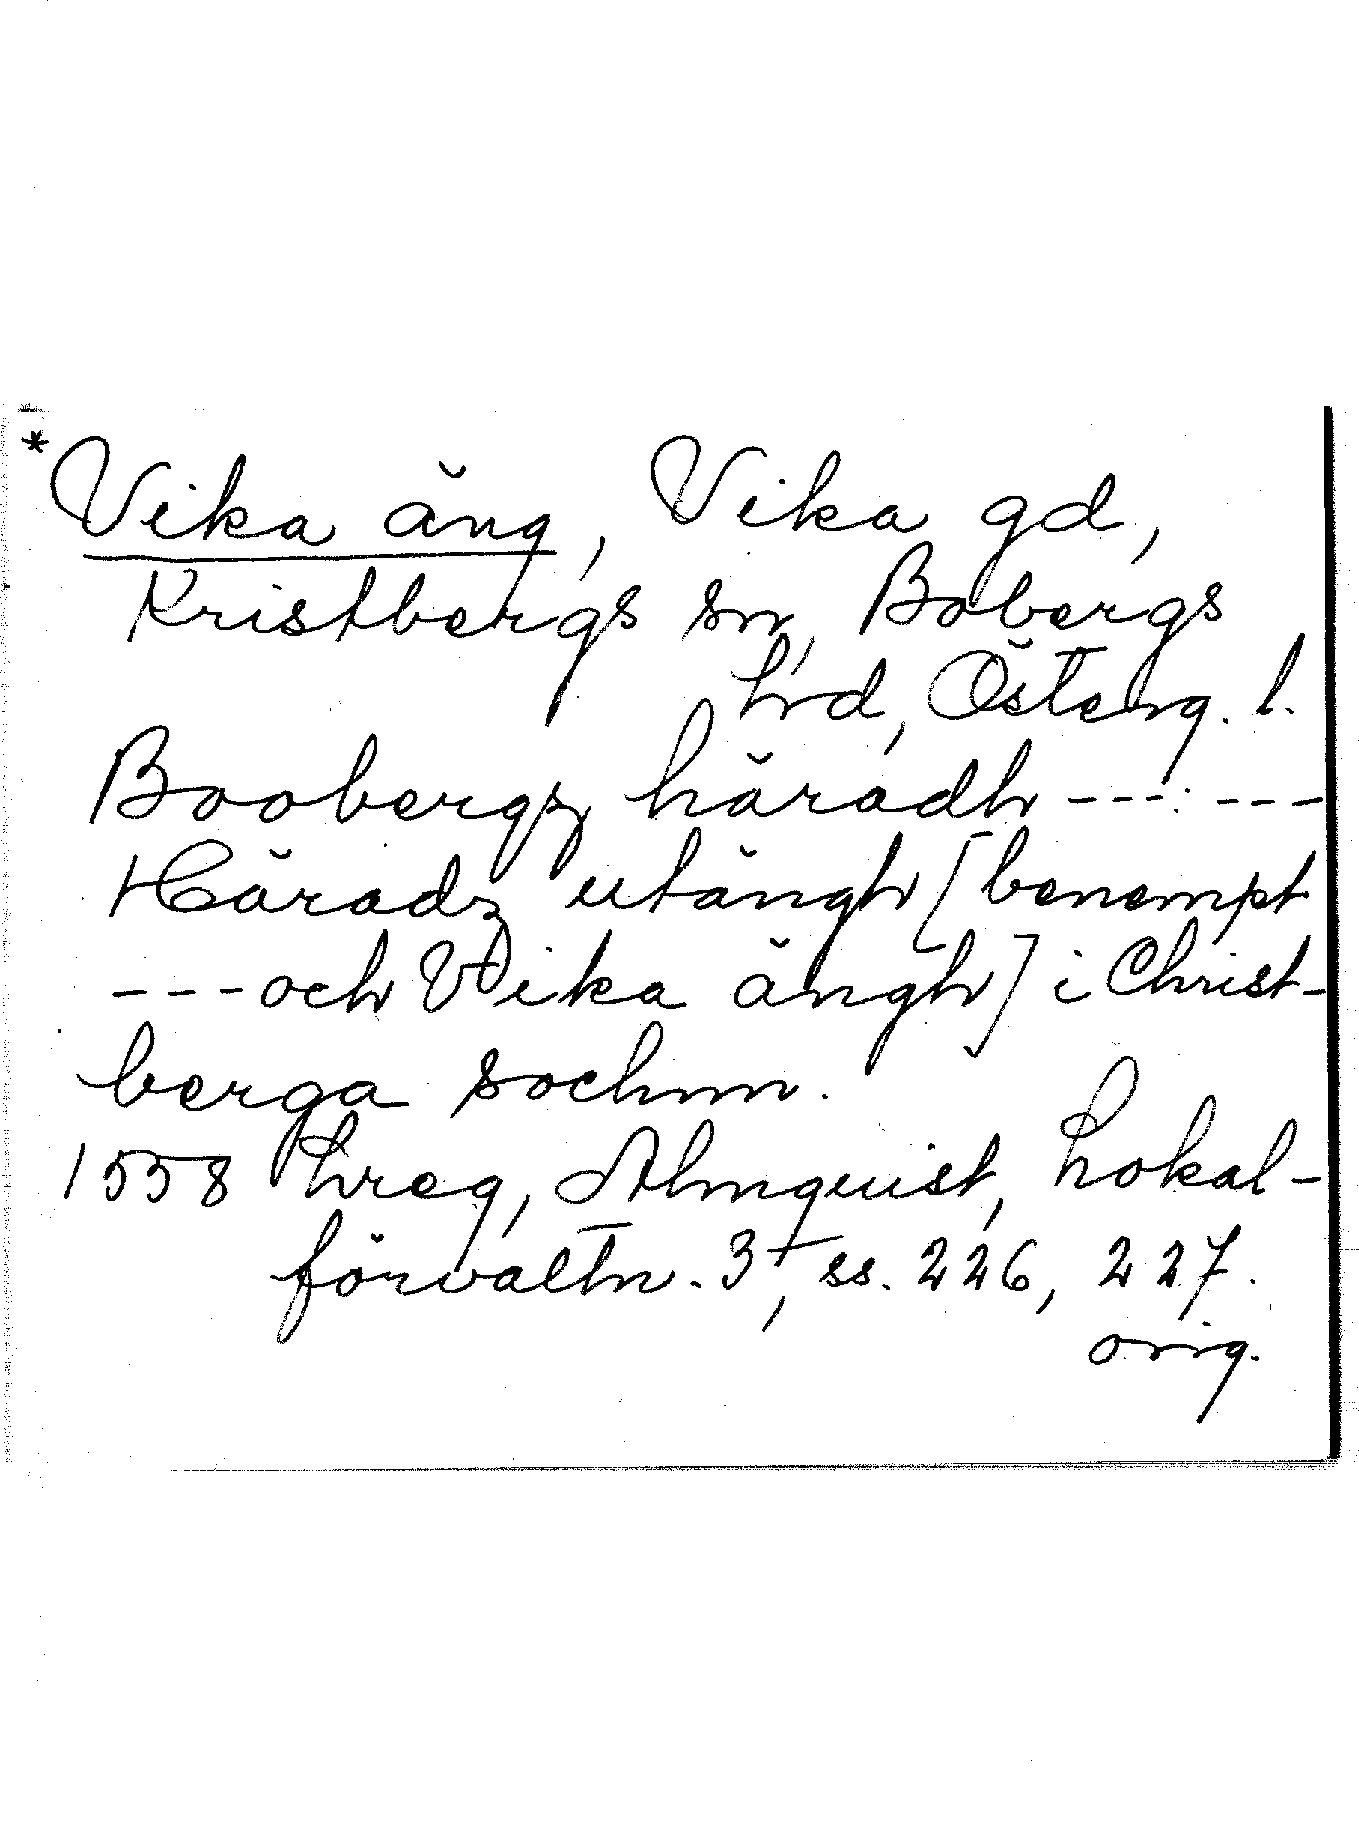 *Vika äng, Vika gd,
Kristbergs sn, Bobergs
hrd, Österg. l.
Boobergz häradh --- ---
Häradz utängh [benempt
--- och Vika ängh] i Christ-
berga sochnn.
1558 hreg, Almquist, Lokal-
förvaltn. 3, ss. 226, 227.
orig.